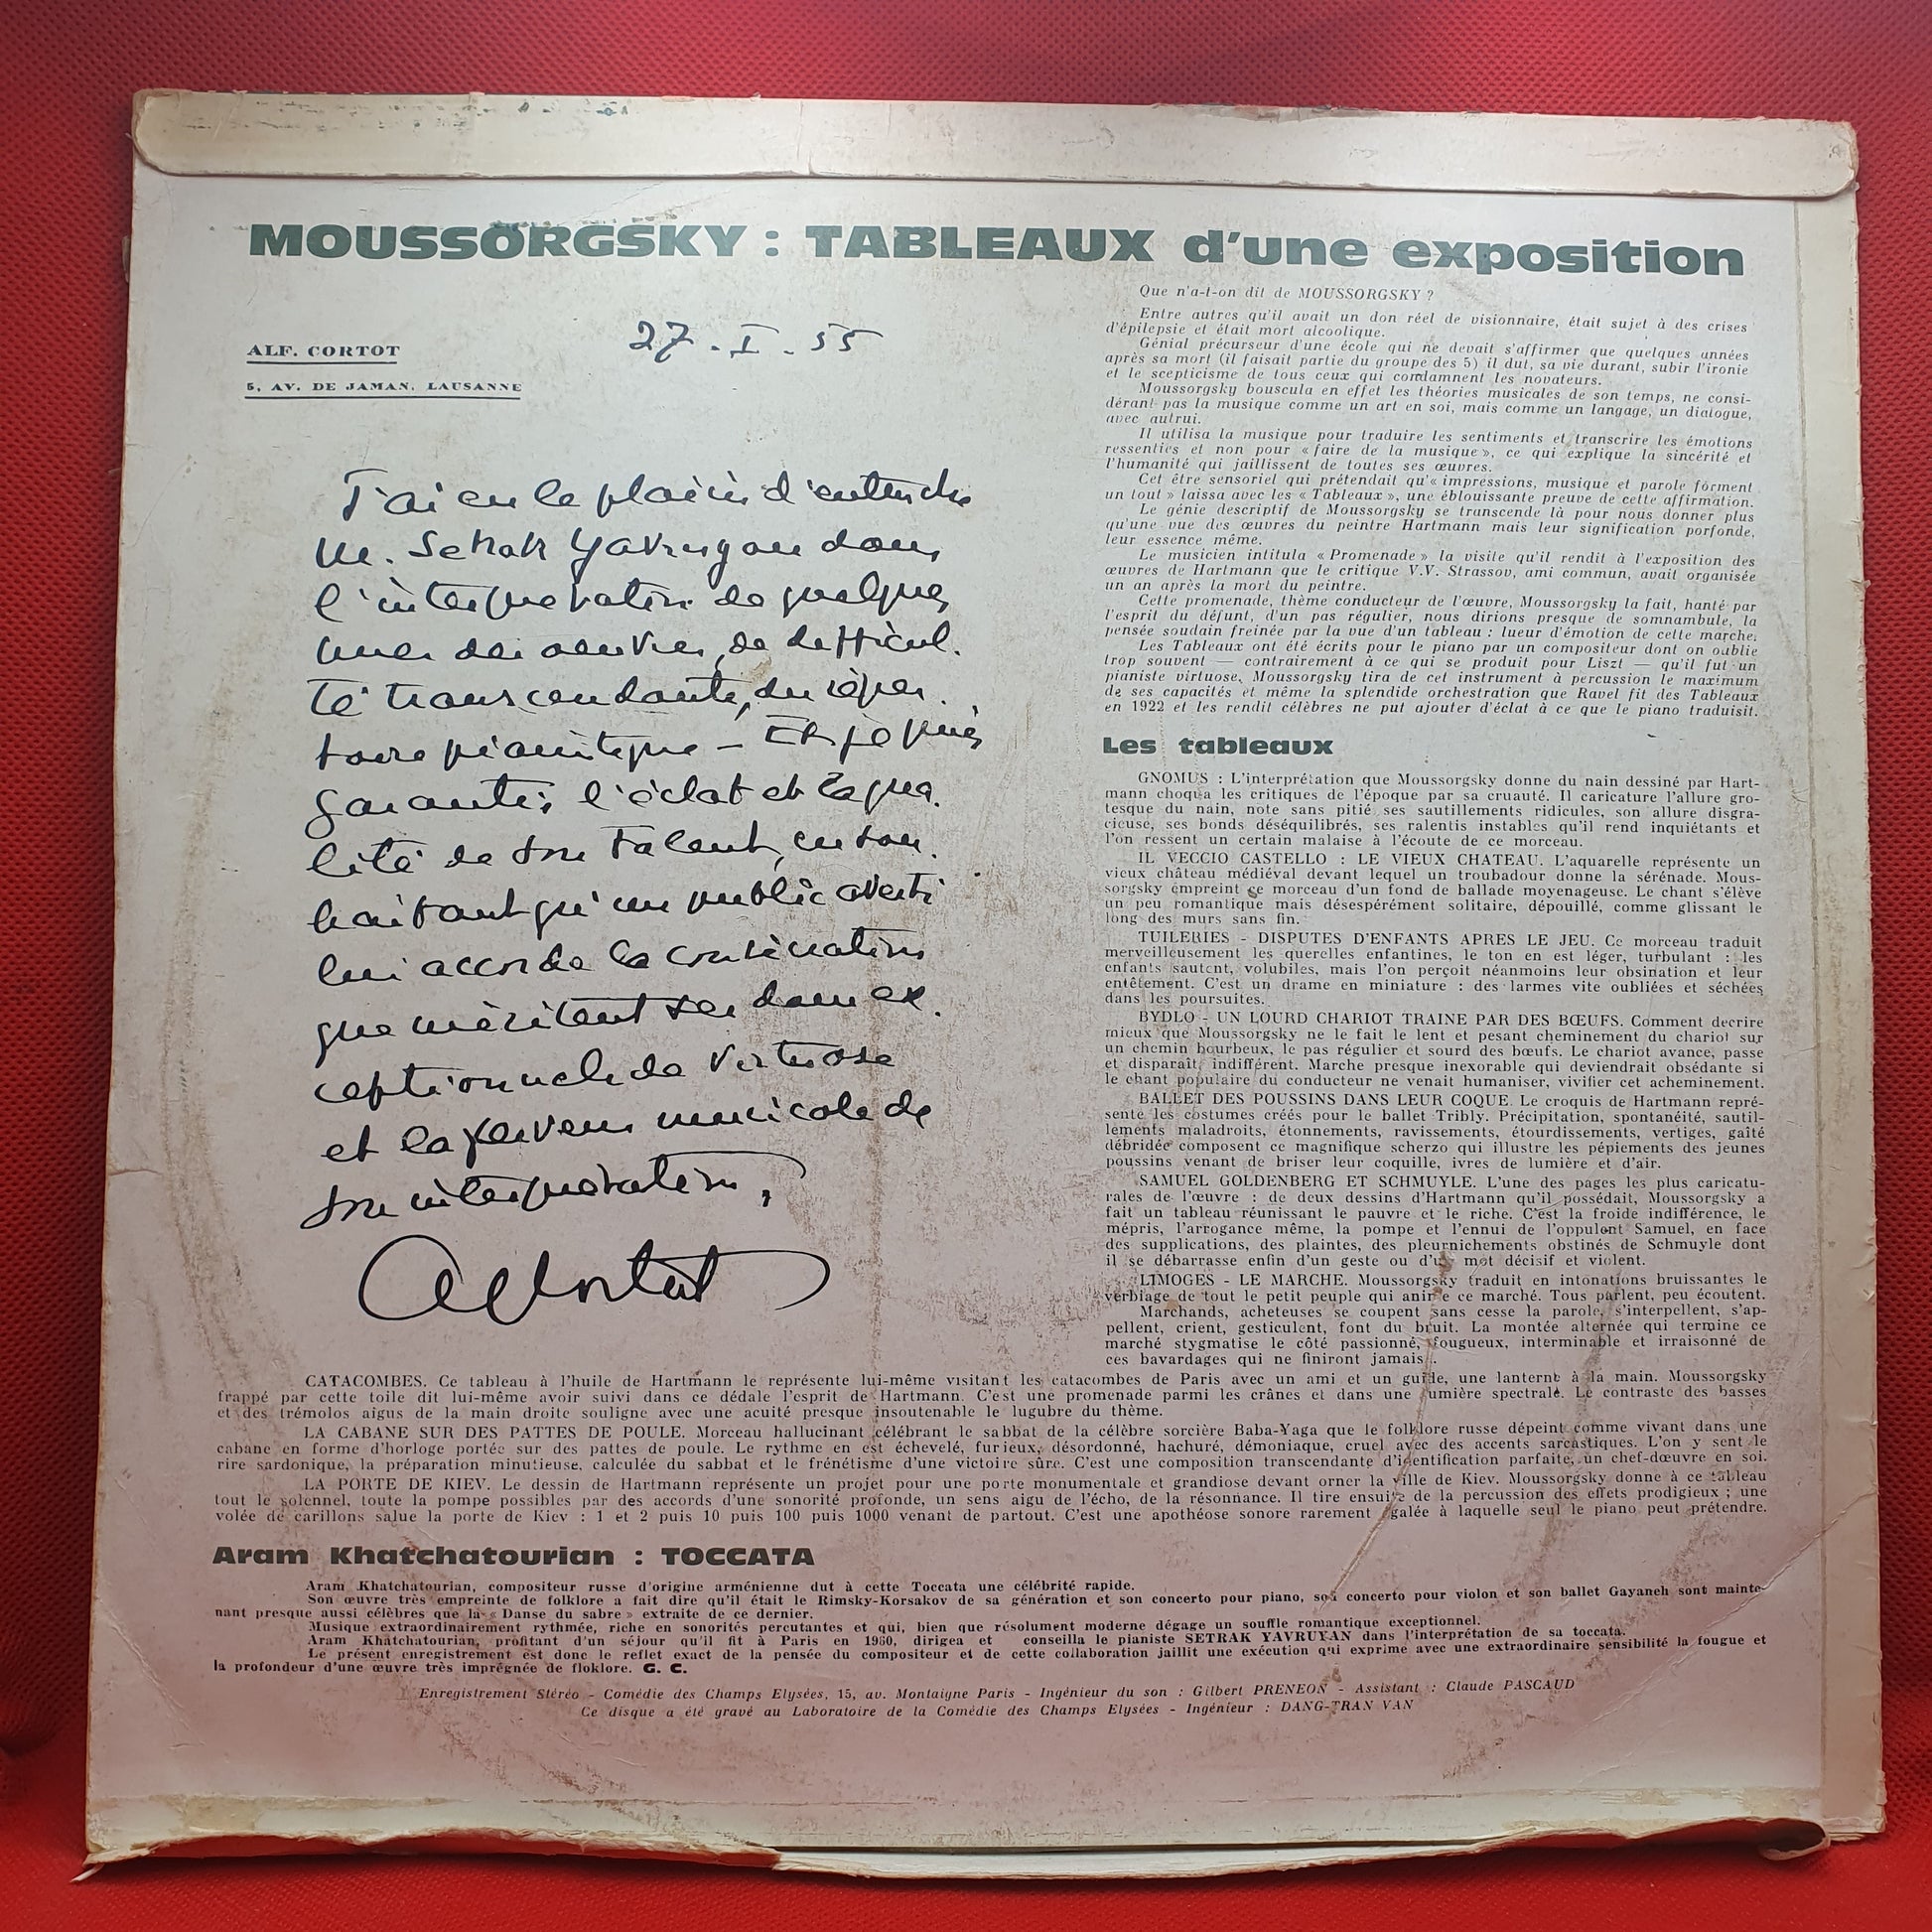 MOUSSORGSKY : TABLEAUX d'une exposition
ALF. CORTOT
5, AV. DE JAMAN, LAUSANNE
27.I.55
J'ai eu le plaisir d'entendre
M. Setrak Yavruyan dans
l'interprétation de quelques
unes des oeuvres, de difficul.
té transcendante, du réper.
toire pianistique – Et je puis
garantir l'éclat et la qua.
lité de son talent, en sou.
haitant qu'un public averti
lui accorde la consécration
que méritent ses dons ex.
ceptionnels de virtuose
et la ferveur musicale de
son interprétation,
A Cortot
Que n'a-t-on dit de MOUSSORGSKY ?
Entre autres qu'il avait un don réel de visionnaire, était sujet à des crises
d'épilepsie et était mort alcoolique.
Génial précurseur d'une école qui ne devait s'affirmer que quelques années
après sa mort (il faisait partie du groupe des 5) il dut, sa vie durant, subir l'ironie
et le scepticisme de tous ceux qui condamnent les novateurs.
Moussorgsky bouscula en effet les théories musicales de son temps, ne consi-
dérant pas la musique comme un art en soi, mais comme un langage, un dialogue,
avec autrui.
Il utilisa la musique pour traduire les sentiments et transcrire les émotions
ressenties et non pour « faire de la musique », ce qui explique la sincérité et
l'humanité qui jaillissent de toutes ses œuvres.
Cet être sensoriel qui prétendait qu'« impressions, musique et parole forment
un tout » laissa avec les « Tableaux », une éblouissante preuve de cette affirmation.
Le génie descriptif de Moussorgsky se transcende là pour nous donner plus
qu'une vue des œuvres du peintre Hartmann mais leur signification porfonde,
leur essence même.
Le musicien intitula « Promenade » la visite qu'il rendit à l'exposition des
œuvres de Hartmann que le critique V.V. Strassov, ami commun, avait organisée
un an après la mort du peintre.
Cette promenade, thème conducteur de l'œuvre, Moussorgsky la fait, hanté par
l'esprit du défunt, d'un pas régulier, nous dirions presque de somnambule, la
pensée soudain freinée par la vue d'un tableau : lueur d'émotion de cette marche.
Les Tableaux ont été écrits pour le piano par un compositeur dont on oublie
trop souvent — contrairement à ce qui se produit pour Liszt — qu'il fut un
pianiste virtuose. Moussorgsky tira de cet instrument à percussion le maximum
de ses capacités et même la splendide orchestration que Ravel fit des Tableaux
en 1922 et les rendit célèbres ne put ajouter d'éclat à ce que le piano traduisit.
Les tableaux
GNOMUS : L'interprétation que Moussorgsky donne du nain dessiné par Hart-
mann choqua les critiques de l'époque par sa cruauté. Il caricature l'allure gro-
tesque du nain, note sans pitié ses sautillements ridicules, son allure disgra-
cieuse, ses bonds déséquilibrés, ses ralentis instables qu'il rend inquiétants et
l'on ressent un certain malaise à l'écoute de ce morceau.
IL VECCIO CASTELLO : LE VIEUX CHATEAU. L'aquarelle représente un
vieux château médiéval devant lequel un troubadour donne la sérénade. Mous-
sorgsky empreint ce morceau d'un fond de ballade moyenageuse. Le chant s'élève
un peu romantique mais désespérément solitaire, dépouillé, comme glissant le
long des murs sans fin.
TUILERIES - DISPUTES D'ENFANTS APRES LE JEU. Ce morceau traduit
merveilleusement les querelles enfantines, le ton en est léger, turbulant : les
enfants sautent, volubiles, mais l'on perçoit néanmoins leur obsination et leur
entêtement. C'est un drame en miniature : des larmes vite oubliées et séchées
dans les poursuites.
BYDLO - UN LOURD CHARIOT TRAINE PAR DES BŒUFS. Comment decrire
mieux que Moussorgsky ne le fait le lent et pesant cheminement du chariot sur
un chemin bourbeux, le pas régulier et sourd des bœufs. Le chariot avance, passe
et disparaît, indifférent. Marche presque inexorable qui deviendrait obsédante si
le chant populaire du conducteur ne venait humaniser, vivifier cet acheminement.
BALLET DES POUSSINS DANS LEUR COQUE. Le croquis de Hartmann repré-
sente les costumes créés pour le ballet Tribly. Précipitation, spontanéité, sautil-
lements maladroits, étonnements, ravissements, étourdissements, vertiges, gaîté
débridée composent ce magnifique scherzo qui illustre les pépiements des jeunes
poussins venant de briser leur coquille, ivres de lumière et d'air.
SAMUEL GOLDENBERG ET SCHMUYLE. L'une des pages les plus caricatu-
rales de l'œuvre : de deux dessins d'Hartmann qu'il possédait, Moussorgsky a
fait un tableau réunissant le pauvre et le riche. C'est la froide indifférence, le
mépris, l'arrogance même, la pompe et l'ennui de l'oppulent Samuel, en face
des supplications, des plaintes, des pleurnichements obstinés de Schmuyle dont
il se débarrasse enfin d'un geste ou d'un mot décisif et violent.
LIMOGES - LE MARCHE. Moussorgsky traduit en intonations bruissantes le
verbiage de tout le petit peuple qui anime ce marché. Tous parlent, peu écoutent.
Marchands, acheteuses se coupent sans cesse la parole, s'interpellent, s'ap-
pellent, crient, gesticulent, font du bruit. La montée alternée qui termine ce
marché stygmatise le côté passionné, fougueux, interminable et irraisonné de
ces bavardages qui ne finiront jamais..
CATACOMBES. Ce tableau à l'huile de Hartmann le représente lui-même visitant les catacombes de Paris avec un ami et un guide, une lanterne à la main. Moussorgsky
frappé par cette toile dit lui-même avoir suivi dans ce dédale l'esprit de Hartmann. C'est une promenade parmi les crânes et dans une lumière spectrale. Le contraste des basses
et des trémolos aigus de la main droite souligne avec une acuité presque insoutenable le lugubre du thème.
LA CABANE SUR DES PATTES DE POULE. Morceau hallucinant célébrant le sabbat de la célèbre sorcière Baba-Yaga que le folklore russe dépeint comme vivant dans une
cabane en forme d'horloge portée sur des pattes de poule. Le rythme en est échevelé, furieux, désordonné, hachuré, démoniaque, cruel avec des accents sarcastiques. L'on y sent le
rire sardonique, la préparation minutieuse, calculée du sabbat et le frénétisme d'une victoire sûre. C'est une composition transcendante d'identification parfaite, un chef-dœuvre en soi.
LA PORTE DE KIEV. Le dessin de Hartmann représente un projet pour une porte monumentale et grandiose devant orner la ville de Kiev. Moussorgsky donne à ce tableau
tout le solennel, toute la pompe possibles par des accords d'une sonorité profonde, un sens aigu de l'écho, de la résonnance. Il tire ensuite de la percussion des effets prodigieux ; une
volée de carillons salue la porte de Kiev : 1 et 2 puis 10 puis 100 puis 1000 venant de partout. C'est une apothéose sonore rarement égalée à laquelle seul le piano peut prétendre.
Aram Khatchatourian : TOCCATA
Aram Khatchatourian, compositeur russe d'origine arménienne dut à cette Toccata une célébrité rapide.
Son œuvre très empreinte de folklore a fait dire qu'il était le Rimsky-Korsakov de sa génération et son concerto pour piano, son concerto pour violon et son ballet Gayaneh sont mainte-
nant presque aussi célèbres que la « Danse du sabre » extraite de ce dernier.
Musique extraordinairement rythmée, riche en sonorités percutantes et qui, bien que résolument moderne dégage un souffle romantique exceptionnel.
Aram Khatchatourian, profitant d'un séjour qu'il fit à Paris en 1960, dirigea et conseilla le pianiste SETRAK YAVRUYAN dans l'interprétation de sa toccata.
Le présent enregistrement est donc le reflet exact de la pensée du compositeur et de cette collaboration jaillit une exécution qui exprime avec une extraordinaire sensibilité la fougue et
la profondeur d'une œuvre très imprégnée de floklore. G. C.
Enregistrement Stéréo - Comédie des Champs Elysées, 15, av. Montaigne Paris - Ingénieur du son : Gilbert PRENEON - Assistant : Claude PASCAUD
Ce disque a été gravé au Laboratoire de la Comédie des Champs Elysées - Ingénieur : DANG-TRAN VAN